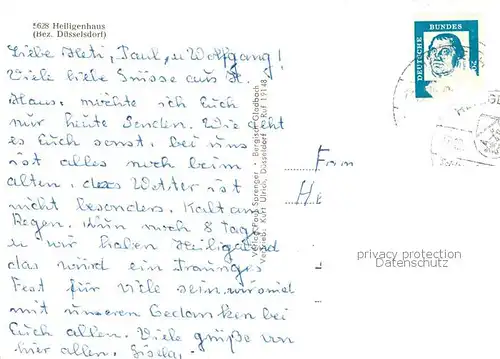 5628 Heiligenhaus
(Bez. Düsseldorf)
Liebe Heti, Paul, u Wolfgang!
Viele liebe Grüsse aus H.
Haus, möchte ich Euch
nur heute senden. Wie geht
es Euch sonst, bei uns
ist alles noch beim
alten, das Wetter ist
nicht besonders. Kalt und
Regen. Nun noch 8 tage
u wir haben Heiligabend
das wird ein Trauriges
Fest für viele sein. wir sind
mit unseren Gedanken bei
Euch allen. Viele grüße von
hier allen. Gisela.
Verlag Foto Sprenger · Bergisch Gladbach
Vertrieb: Kurt Ulrich, Düsseldorf · Ruf 19148
DEUTSCHE BUNDES
20
Fam
He
privacy protection
Datenschutz